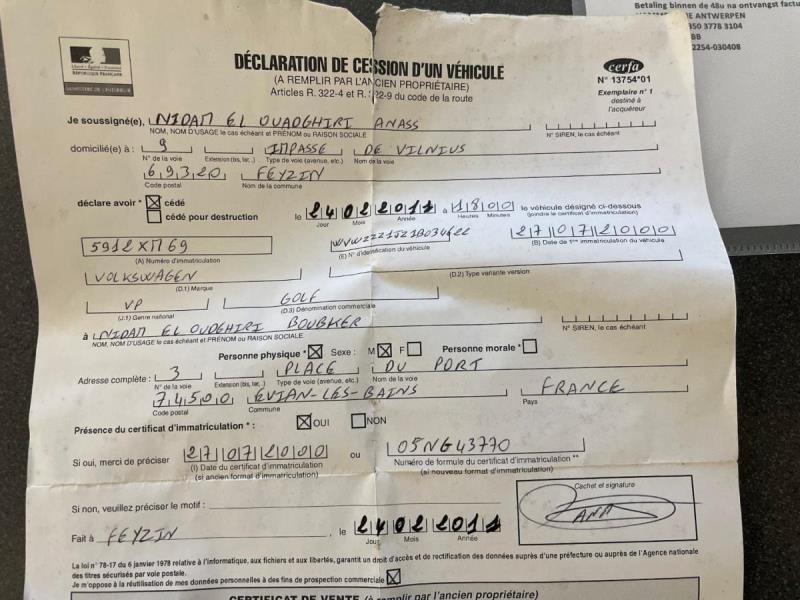 Betaling binnen de 48u na ontvangst factu
ANTWERPEN
350 3778 3104
BB
2254-030408
Liberté • Égalité • Fraternité
RÉPUBLIQUE FRANÇAISE
MINISTÈRE DE L'INTÉRIEUR
DÉCLARATION DE CESSION D'UN VÉHICULE
(A REMPLIR PAR L'ANCIEN PROPRIÉTAIRE)
Articles R. 322-4 et R. 322-9 du code de la route
cerfa
N° 13754*01
Exemplaire n° 1
destiné à
l'acquéreur
Je soussigné(e), NIDAM EL OUADGHIRI ANASS
NOM, NOM D'USAGE le cas échéant et PRÉNOM ou RAISON SOCIALE N° SIREN, le cas échéant
domicilié(e) à : 9 IMPASSE DE VILNIUS
N° de la voie Extension (bis, ter,..) Type de voie (avenue, etc.) Nom de la voie
69320 FEYZIN
Code postal Nom de la commune
déclare avoir * cédé
cédé pour destruction
le 24 02 2011 à 18 00 le véhicule désigné ci-dessous
Jour Mois Année Heures Minutes (joindre le certificat d'immatriculation)
5912XM69 27 07 2000
(A) Numéro d'immatriculation (E) N° d'identification du véhicule (B) Date de 1ère immatriculation du véhicule
VOLKSWAGEN
(D.1) Marque (D.2) Type variante version
VP GOLF
(J.1) Genre national (D.3) Dénomination commerciale
à NIDAM EL OUDGHIRI BOUBKER
NOM, NOM D'USAGE le cas échéant et PRÉNOM ou RAISON SOCIALE N° SIREN, le cas échéant
Personne physique * Sexe : M F Personne morale *
Adresse complète : 3 PLACE DU PORT
N° de la voie Extension (bis, ter,..) Type de voie (avenue, etc.) Nom de la voie
74500 EVIAN-LES-BAINS FRANCE
Code postal Commune Pays
Présence du certificat d'immatriculation * : OUI NON
Si oui, merci de préciser 27 07 2000 ou 05NG43770
(I) Date du certificat d'immatriculation Numéro de formule du certificat d'immatriculation **
(si ancien format d'immatriculation) (si nouveau format d'immatriculation)
Si non, veuillez préciser le motif :
Cachet et signature
Fait à FEYZIN, le 24 02 2011
Jour Mois Année
La loi n° 78-17 du 6 janvier 1978 relative à l'informatique, aux fichiers et aux libertés, garantit un droit d'accès et de rectification des données auprès d'une préfecture ou auprès de l'Agence nationale
des titres sécurisés par voie postale.
Je m'oppose à la réutilisation de mes données personnelles à des fins de prospection commerciale
CERTIFICAT DE VENTE (à remplir par l'ancien propriétaire)